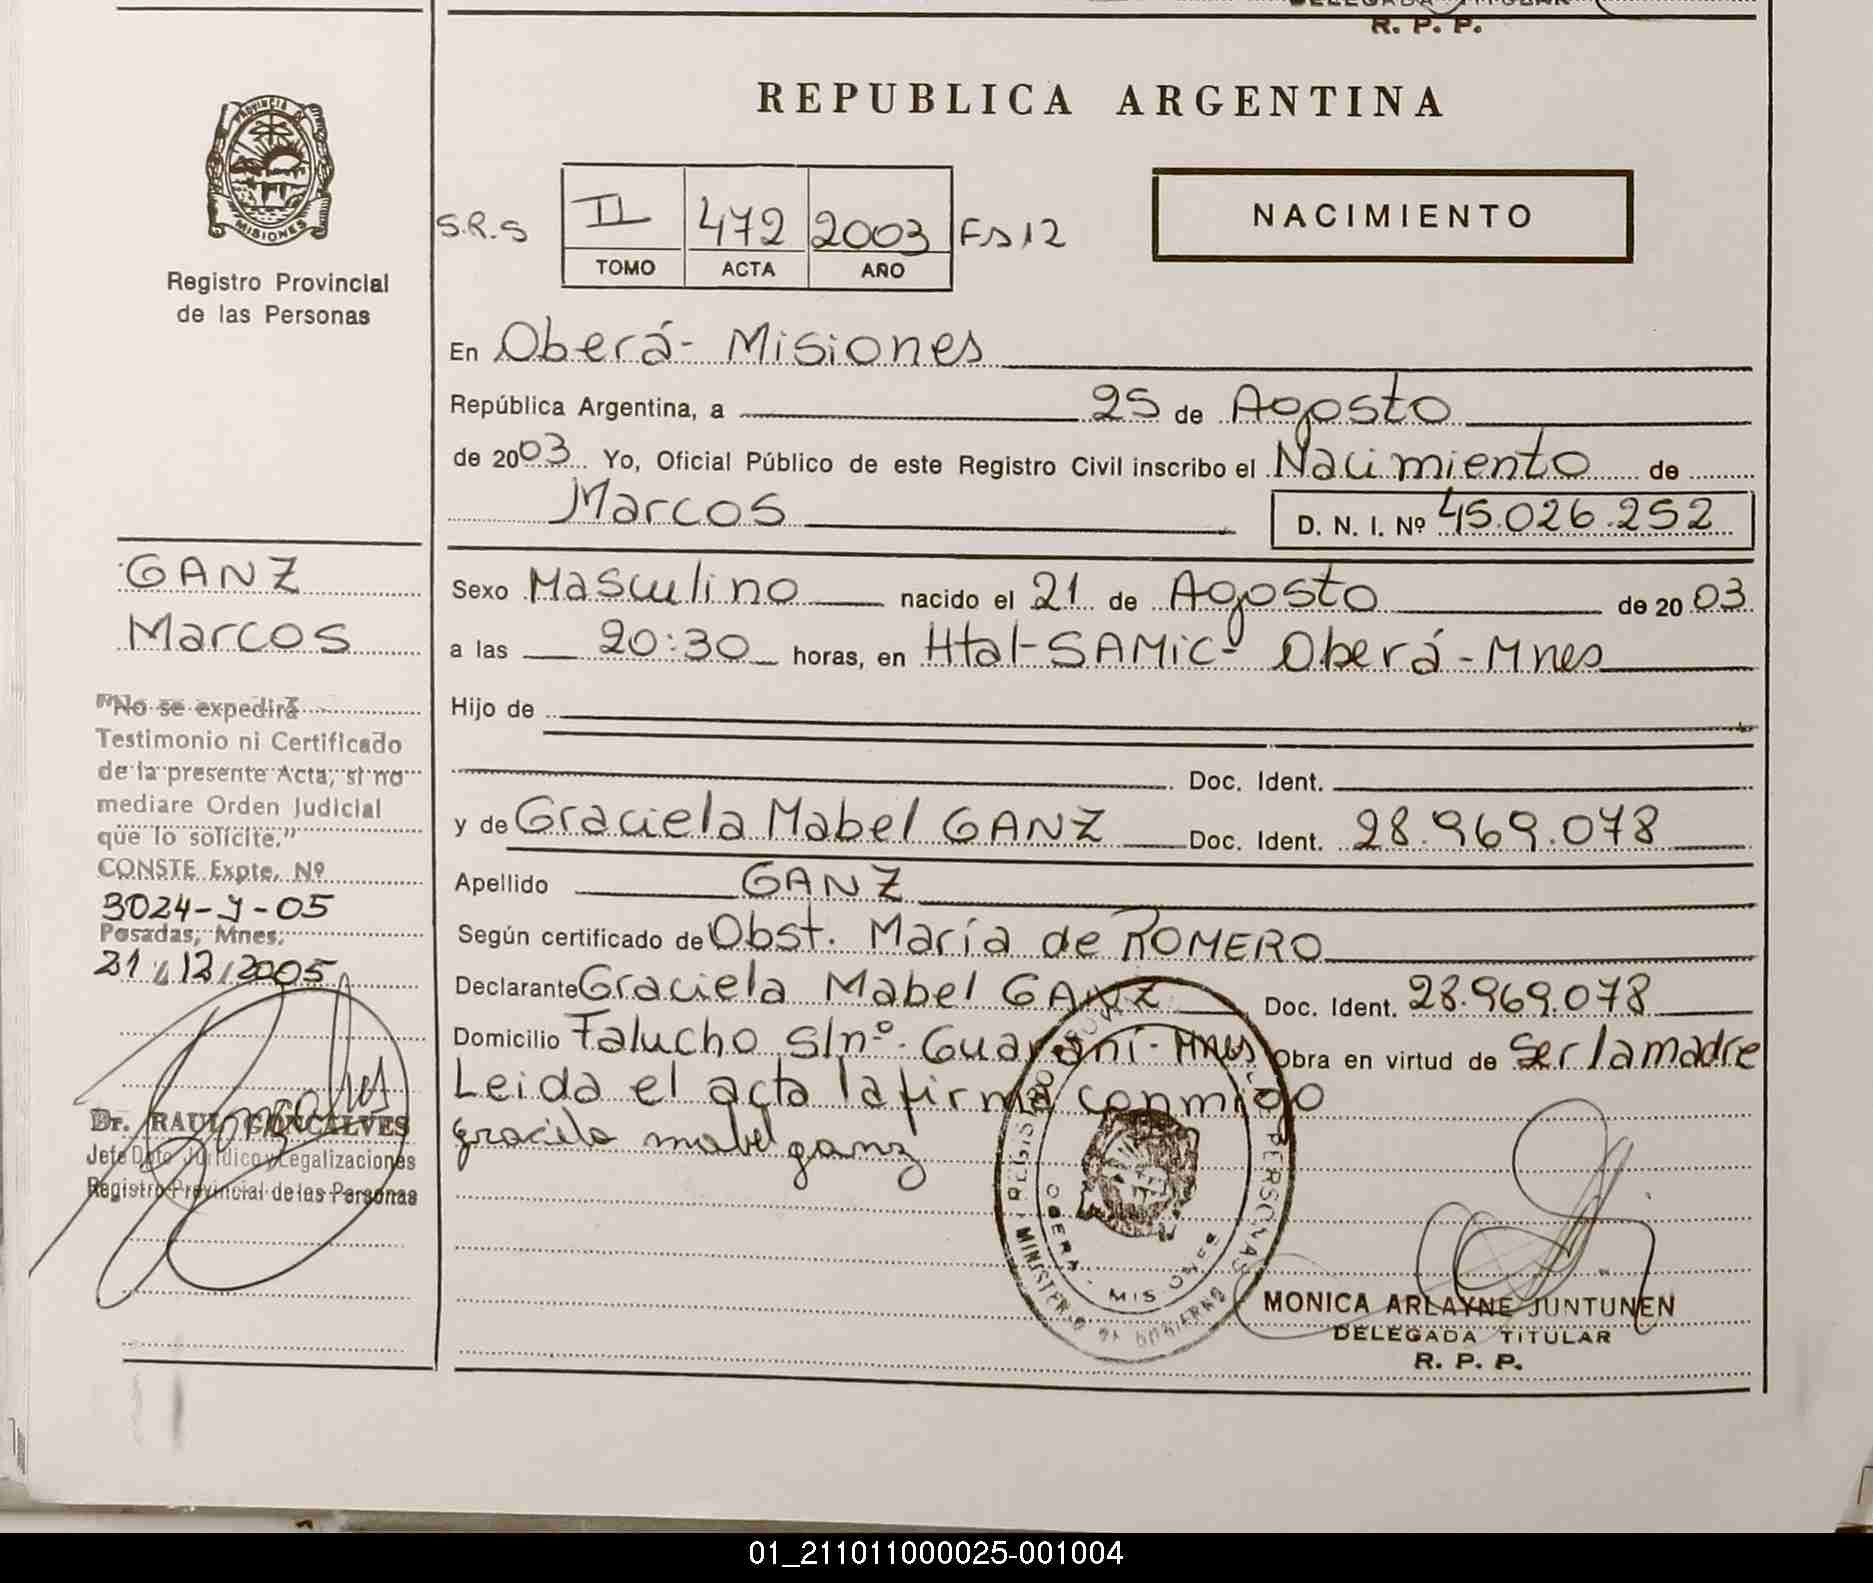 DELEGADA TITULAR
R. P. P.
REPUBLICA ARGENTINA
PROVINCIA DE
MISIONES
Registro Provincial
de las Personas
S.R.S
II 472 2003 Fs 12
TOMO ACTA AÑO
NACIMIENTO
En Oberá- Misiones
República Argentina, a 25 de Agosto
de 2003 Yo, Oficial Público de este Registro Civil inscribo el Nacimiento de
Marcos D. N. I. Nº 45.026.252
Sexo Masculino nacido el 21 de Agosto de 2003
a las 20:30 horas, en Htal-SAMic- Oberá-Mnes
Hijo de
Doc. Ident.
y de Graciela Mabel GANZ Doc. Ident. 28.969.078
Apellido GANZ
Según certificado de Obst. María de ROMERO
Declarante Graciela Mabel GANZ Doc. Ident. 28.969.078
Domicilio Falucho S/nº. Guaraní- Mnes Obra en virtud de Ser la madre
Leida el acta la firma conmigo
graciela mabel ganz
GANZ
Marcos
"No se expedirá
Testimonio ni Certificado
de la presente Acta, si no
mediare Orden Judicial
que lo solicite."
CONSTE Expte. Nº
3024-J-05
Posadas, Mnes.
21/12/2005
Dr. RAUL GONCALVES
Jefe Dpto Jurídico y Legalizaciones
Registro Provincial de las Personas
OBERA - MISIONES
MINISTERIO DE GOBIERNO
MONICA ARLAYNE JUNTUNEN
DELEGADA TITULAR
R. P. P.
01_211011000025-001004